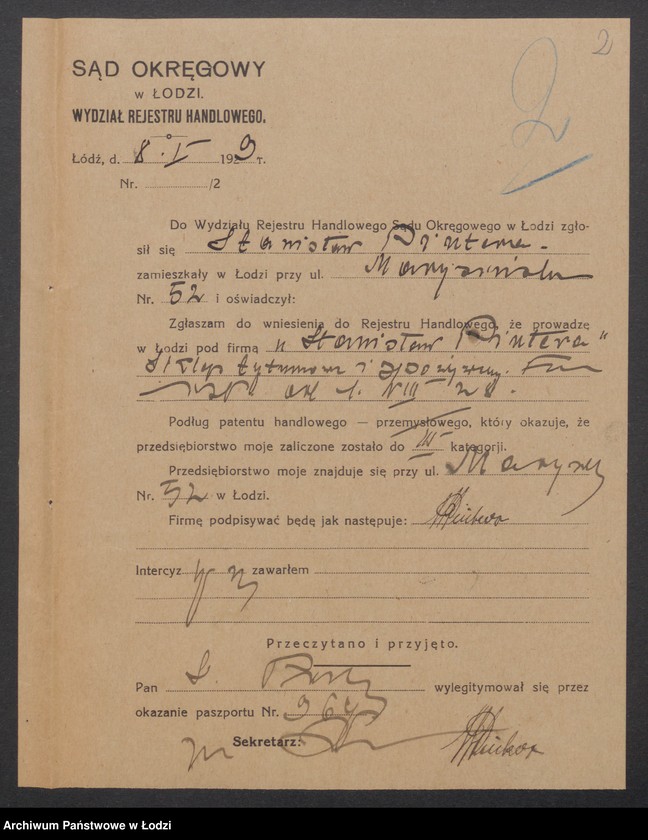 2
2
SĄD OKRĘGOWY
w ŁODZI.
WYDZIAŁ REJESTRU HANDLOWEGO.
Łódź, d. 8. I 1929 r.
Nr. /2
Do Wydziału Rejestru Handlowego Sądu Okręgowego w Łodzi zgło-
sił się Stanisław Pintera.
zamieszkały w Łodzi przy ul. Marysińska
Nr. 52 i oświadczył:
Zgłaszam do wniesienia do Rejestru Handlowego, że prowadzę
w Łodzi pod firmą „Stanisław Pintera"
Sklep tytoniowy i spożywczy.
od 1. VIII 28.
Podług patentu handlowego — przemysłowego, który okazuje, że
przedsiębiorstwo moje zaliczone zostało do III kategorji.
Przedsiębiorstwo moje znajduje się przy ul. Marys
Nr. 52 w Łodzi.
Firmę podpisywać będę jak następuje:
Intercyz zawarłem
Przeczytano i przyjęto.
Pan S. wylegitymował się przez
okazanie paszportu Nr.
Sekretarz:
Archiwum Państwowe w Łodzi